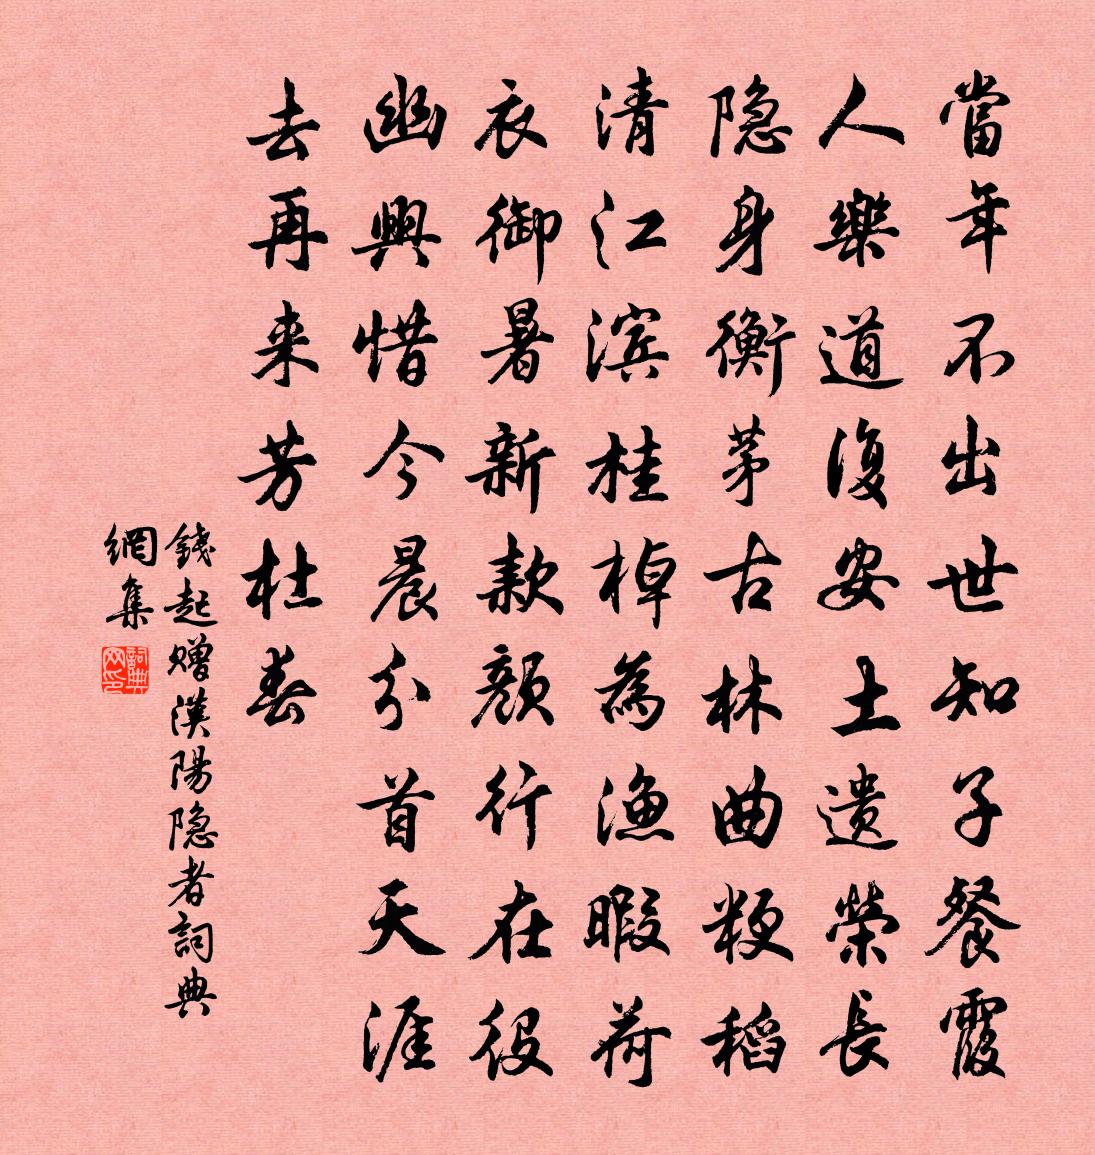 當年不出世知子餐霞
人樂道復安土遗榮長
隐身衡茅古林曲粳稻
清江滨桂棹為漁暇荷
衣御暑新款顔行在役
幽興惜今晨分首天涯
去再来芳杜春
錢起赠漢陽隐者詞典
網集
詞典网印